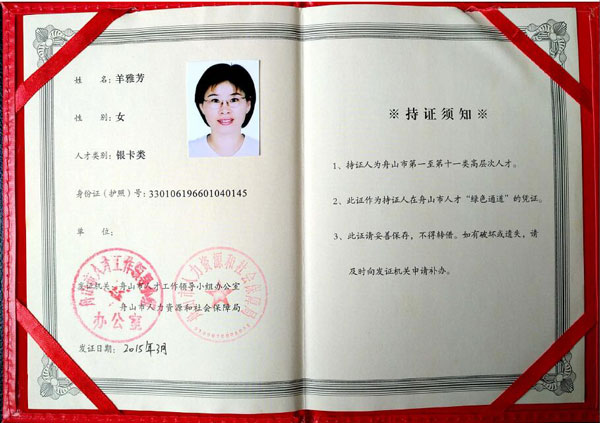 姓 名：羊雅芳
性 别：女
人才类别：银卡类
身份证（护照）号：330106196601040145
单 位：
发证机关：舟山市人才工作领导小组办公室
舟山市人力资源和社会保障局
发证日期：2015年3月
办公室
※ 持证须知 ※
1、持证人为舟山市第一至第十一类高层次人才。
2、此证作为持证人在舟山市人才“绿色通道”的凭证。
3、此证请妥善保存，不得转借。如有破坏或遗失，请
及时向发证机关申请补办。